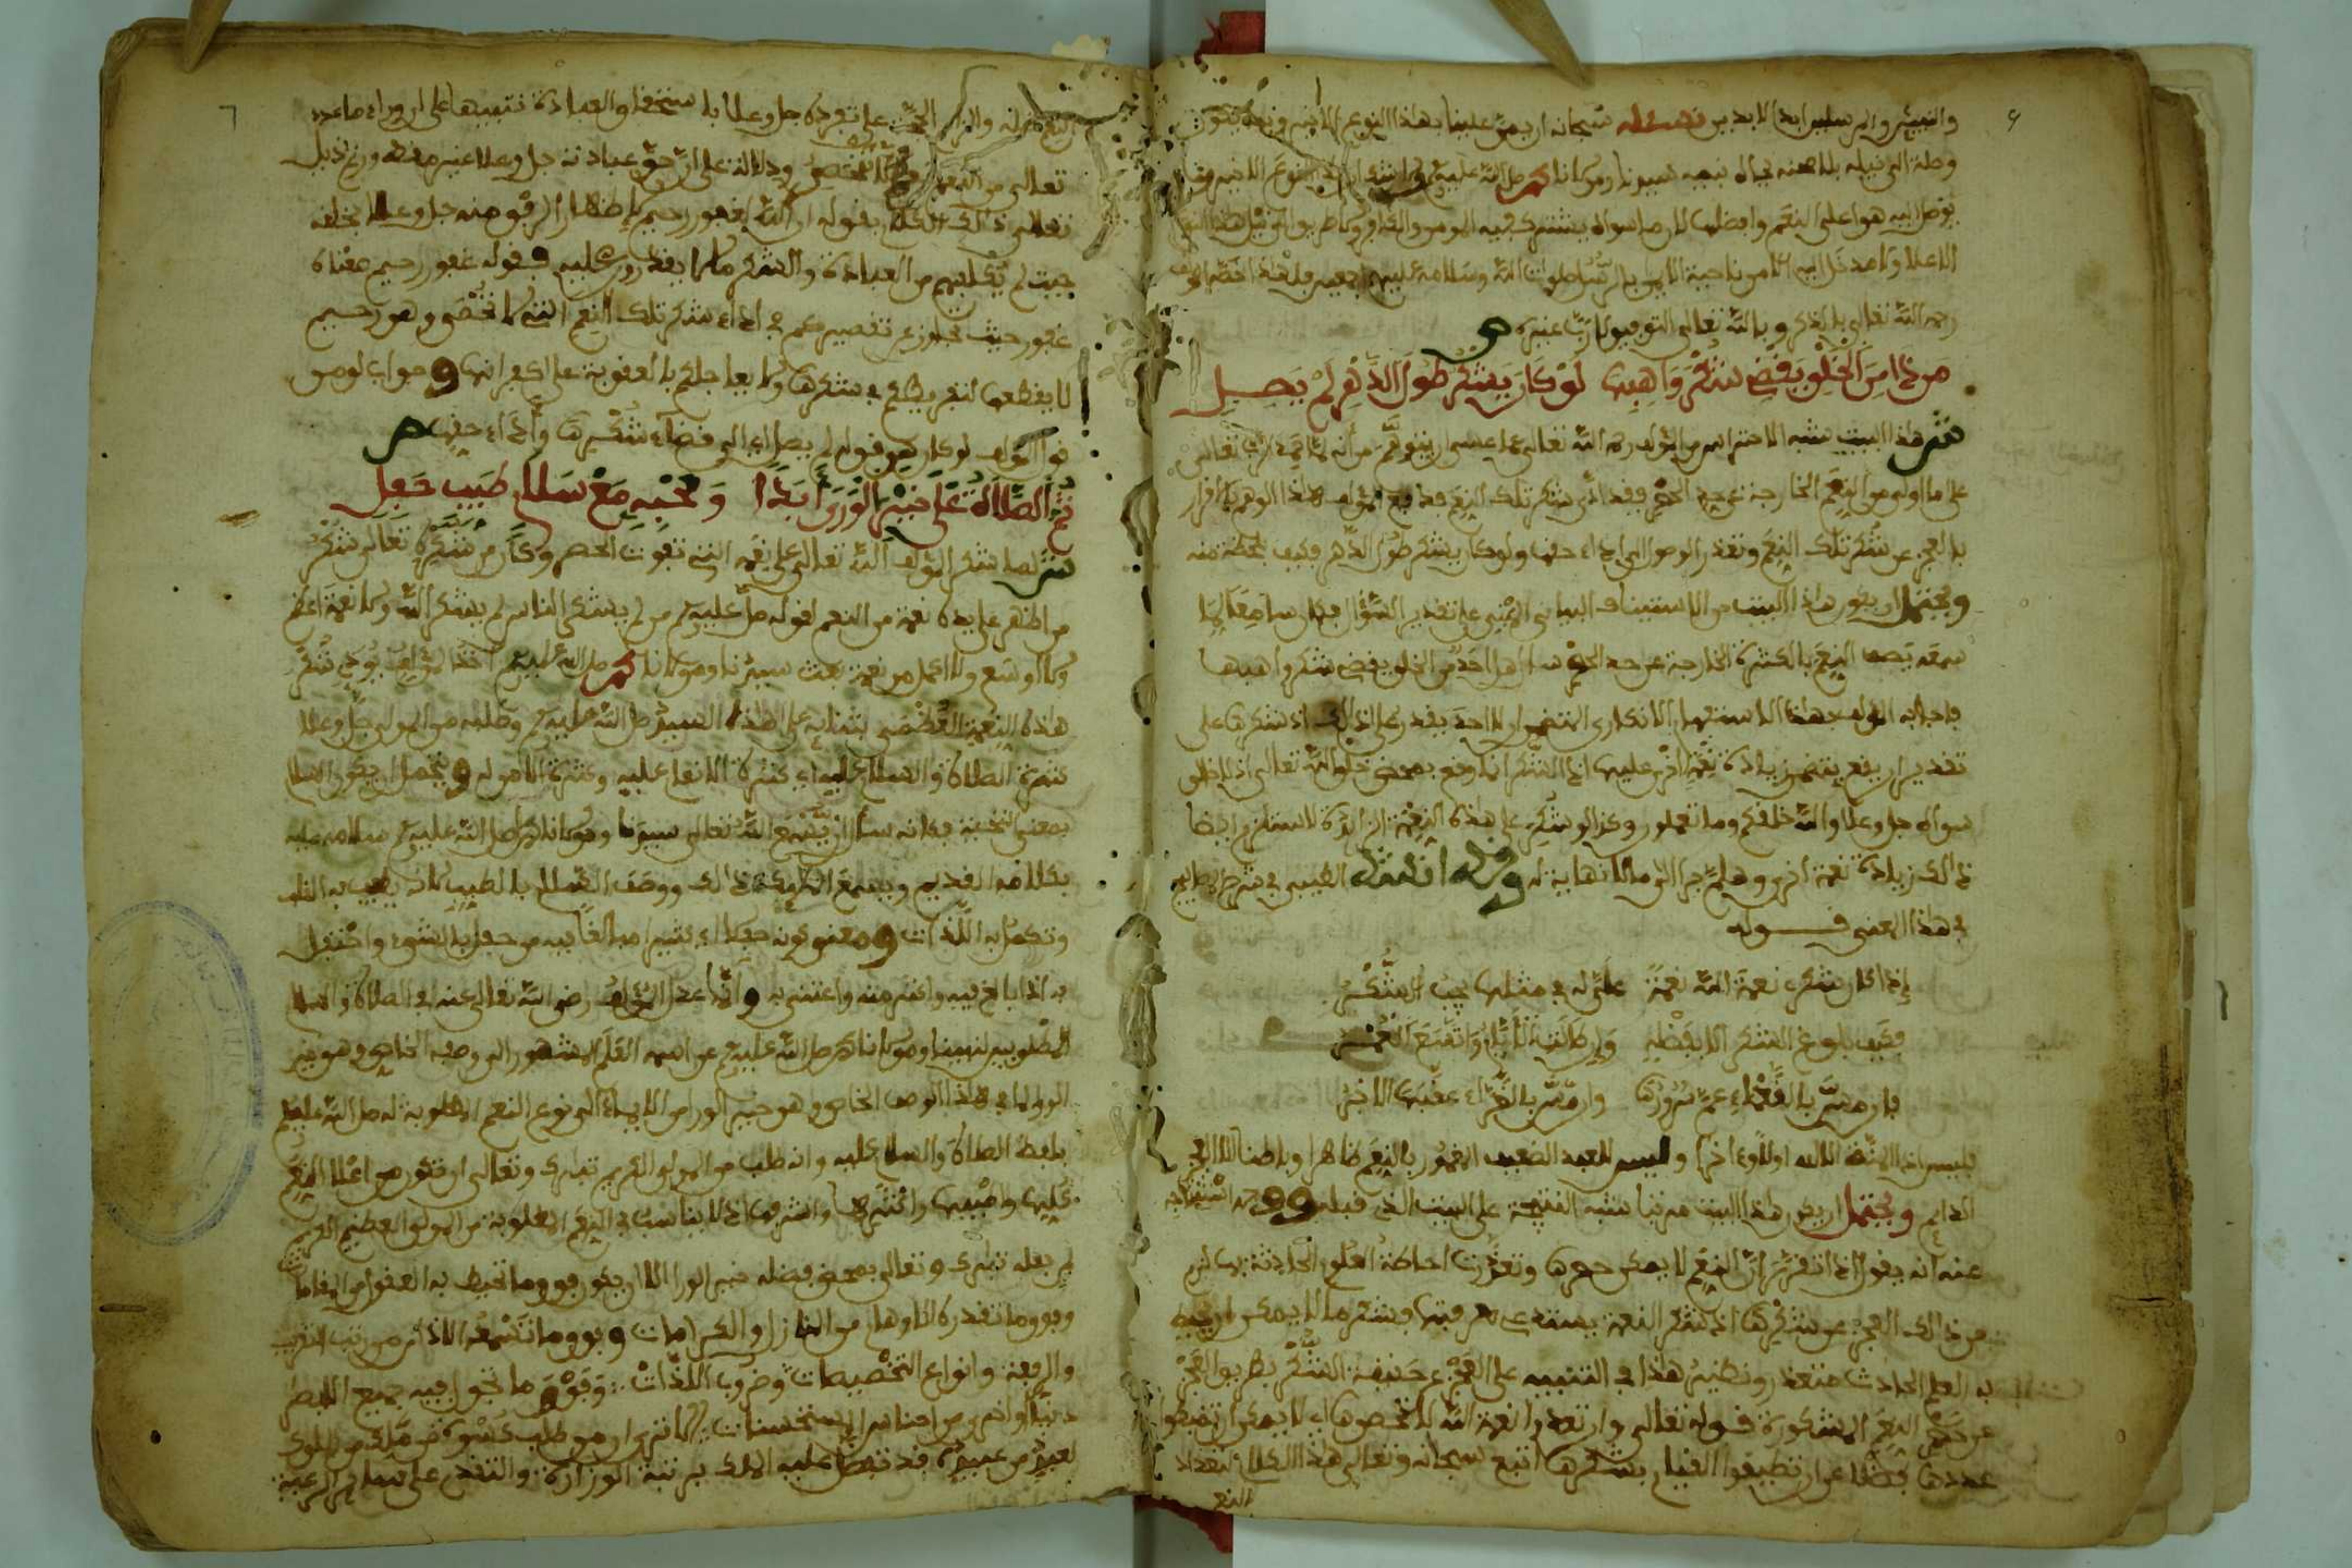 والنبيين والمرسلين ابد الابدين نسئله سبحانه ان يمن علينا بهذا النوع
وصلة الى نيله بلا محنة بجاه نبيه سيدنا ومولانا محمد صلى الله عليه وسلم
هو اعلى النعم وافضلها اذ ما سواه يشترك فيه المومن والكافر
صلوات الله وسلامه عليهم اجمعين فلهذا خصه المولف
رحمه الله تعالى بالذكر وبالله تعالى التوفيق لا رب غيره ص
من ذا من الخلق يقضي شكر واهبها لو كان يشكر طول الدهر لم يصل
ش هذا البيت شبه الاحتراس من المولف رحمه الله تعالى عما عسى ان يتوهم من انه لما حمد الله تعالى
على ما اولاه من النعم الخارجة عن حد الحصر فقد ادى شكر تلك النعم فدفع المولف هذا الوهم بالاقرار
بالعجز عن شكر تلك النعم وتعذر الوصول الى اداء حقها ولو كان يشكر طول الدهر فكيف بلحظة منه
ويحتمل ان يكون هذا البيت من الاستيناف البياني المبني على تقدير السؤال فكان سامعا لما
سمعه يصف النعم بالكثرة الخارجة عن حد الحصر سال هل احد من الخلق يقضي شكر واهبها
فاجابه المولف بهذا الاستفهام الانكاري المتضمن ان لا احد يقدر على ذالك اذ شكرها على
تقدير ان يقع يتضمن زيادة نعمة اخرى عليها اذ الشكر انما وقع بمحض خلق الله تعالى اذ لا خالق
سواه جل وعلا والله خلقكم وما تعملون وكذا لو شكر على هذه النعمة الزائدة لاستلزم ايضا
ذالك زيادة نعمة اخرى وهلم جرا الى ما لا نهاية له وقد انشد الطيبي في شرح المصابيح
في هذا المعنى قوله
إذا كان شكري نعمة الله نعمة علي له في مثلها يجب الشكر
فكيف بلوغ الشكر الا بفضله وان طالت الايام واتسع العمر
فان مس بالنعماء عم سرورها وان مس بالضراء عقبها الاجر
فليس اذا المنة الا لله اولا وءاخرا وليس للعبد الضعيف المغمور بالنعم ظاهرا وباطنا الا العجز
الدايم ويحتمل ان يكون هذا البيت مرتبا شبه النتيجة على البيت الذي قبله
عنه انه يقول اذا تقرر ان النعم لا يمكن حصرها وتعذرت احاطة العلوم الحادثة بها لزم
من ذالك العجز عن شكرها اذ شكر النعمة يستدعي معرفتها وشكر ما لا يمكن ان يحيط
به العلم الحادث متعذر ونظير هذا في التنبيه على العجز عن حقيقة الشكر بطريق العجز
عن حصر النعم المشكورة قوله تعالى وان تعدوا نعمة الله لا تحصوها اي لا يمكن ان تضبطوا
عددها فضلا عن ان تطيقوا القيام بشكرها اتبع سبحانه وتعالى هذا الكلام بتعداد
النعم
على تفرده جل وعلا باستحقاق العبادة تنبيها على ان وراء ما عدد
تعالى من النعم ودلالة على ان حق عبادته جل وعلا غير
تعالى ذالك الكلام بقوله ان الله لغفور رحيم لاظهار الرفق منه جل وعلا بخلقه
حيث لم يكلفهم من العبادة والشكر ما لا يقدرون عليه وقوله غفور رحيم معناه
غفور حيث تجاوز عن تقصيركم في اداء شكر تلك النعم التي لا تحصى وهو رحيم
لا يقطعها لتفريطكم في شكرها ولا يعاجلكم بالعقوبة على كفرانها وجواب لو من
قول المولف لو كان هو قوله لم يصل اي الى قضاء شكرها واداء حقها ص
ثم الصلاة على خير الورى ابدا وصحبه مع سلام طيب حفل
ش لما شكر المولف الله تعالى على نعمه التي تفوت الحصر وكان من شكره تعالى شكر
من اظهر على يده نعمة من النعم لقوله صلى الله عليه وسلم من لم يشكر الناس لم يشكر الله ولا نعمة اعم
ولا اوسع ولا اكمل من نعمة بعث سيدنا ومولانا محمد صلى الله عليه وسلم اخذ المولف يودي شكر
هذه النعمة العظمى بثنايه على هذا السيد صلى الله عليه وسلم وطلبه من المولى جل وعلا
كثرة الصلاة والسلام عليه اي كثرة الانعام عليه وكثرة الامن له ويحتمل ان يكون السلام
بمعنى التحية فكانه سال ان يسمع الله تعالى سيدنا ومولانا محمد صلى الله عليه وسلم سلامه عليه
بكلامه القديم ويسمع الملائكة ذالك ووصف السلام بالطيب لانه يطيب به القلب
وتكمل به اللذات ومعنى كونه حفلا اي كثيرا مبالغا فيه من حفل بالشيء واحتفل
به اذا بالغ فيه واكثر منه واعتنى به وانما عدل المولف رضي الله تعالى عنه في الصلاة والسلام
المطلوبين لنبينا ومولانا محمد صلى الله عليه وسلم عن اسمه العلم المشهور الى وصفه الخاص وهو خير
الورى لما في هذا الوصف الخاص وهو خير الورى من الايماء الى نوع النعم المطلوبة له صلى الله عليه وسلم
بلفظ الصلاة والسلام عليه وانه طلب من المولى الكريم تبارك وتعالى ان تكون من اعلا النعم
واطيبها واكثرها واشرفها اذ لا يناسب في النعم المطلوبة من المولى العظيم الكريم
لمن جعله تبارك وتعالى بمحض فضله خير الورى الا ان يكون فوق ما تحيط به العقول من المقامات
وفوق ما تقدره الاوهام من المنازل والكرامات وفوق ما تسمعه الاذان من رتب القرب
والرفعة وانواع التخصيصات وضروب اللذات وفوق ما تجول فيه جميع الالباب
دنيا واخرى من اجناس المستحسنات الا ترى ان من طلب كسوة من ملك من الملوك
لعبد من عبيده قد تفضل عليه الملك برتبة الوزارة والتقدم على سائر الرعية